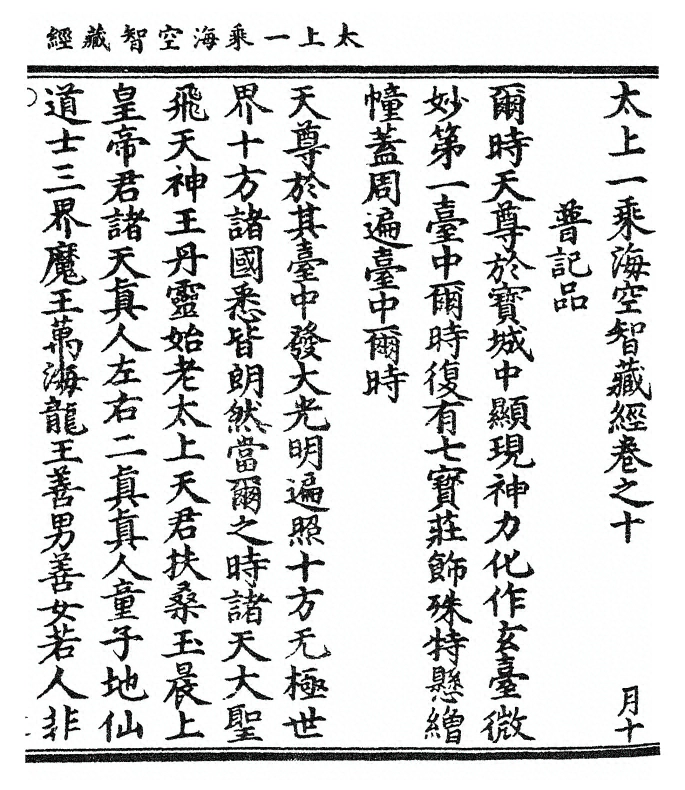 太上一乘海空智藏經
太上一乘海空智藏經卷之十
月十
普記品
爾時天尊於寶城中顯現神力化作玄臺微
妙第一臺中爾時復有七寶莊飾殊特懸繒
幢蓋周遍臺中爾時
天尊於其臺中發大光明遍照十方无極世
界十方諸國悉皆朗然當爾之時諸天大聖
飛天神王丹靈始老太上天君扶桑玉晨上
皇帝君諸天真人左右二真真人童子地仙
道士三界魔王萬海龍王善男善女若人非